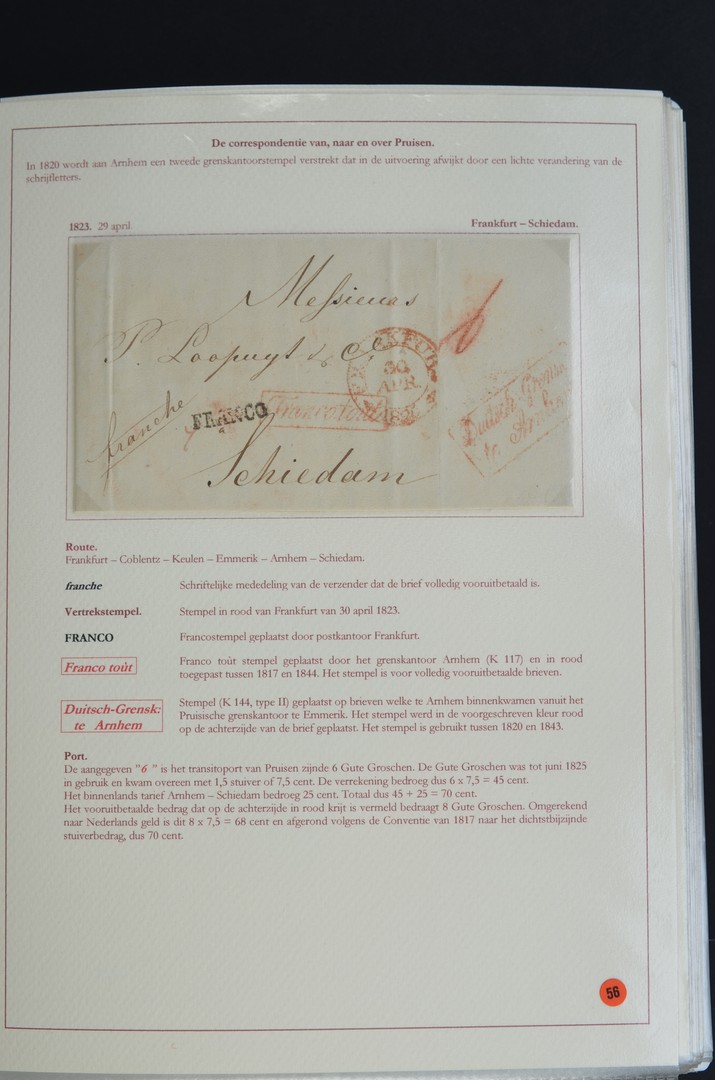 De correspondentie van, naar en over Pruisen.
In 1820 wordt aan Arnhem een tweede grenskantoorstempel verstrekt dat in de uitvoering afwijkt door een lichte verandering van de
schrijfletters.
1823. 29 april.
Frankfurt – Schiedam.
Messieurs
P. Loopuyt & Cº
franche
FRANCO
Franco toût
30
APR.
6
Duitsch Grensk
te Arnhe
Schiedam
Route.
Frankfurt – Coblentz – Keulen – Emmerik – Arnhem – Schiedam.
franche Schriftelijke mededeling van de verzender dat de brief volledig vooruitbetaald is.
Vertrekstempel. Stempel in rood van Frankfurt van 30 april 1823.
FRANCO Francostempel geplaatst door postkantoor Frankfurt.
Franco toùt Franco toùt stempel geplaatst door het grenskantoor Arnhem (K 117) en in rood
toegepast tussen 1817 en 1844. Het stempel is voor volledig vooruitbetaalde brieven.
Duitsch-Grensk: Stempel (K 144, type II) geplaatst op brieven welke te Arnhem binnenkwamen vanuit het
te Arnhem Pruisische grenskantoor te Emmerik. Het stempel werd in de voorgeschreven kleur rood
op de achterzijde van de brief geplaatst. Het stempel is gebruikt tussen 1820 en 1843.
Port.
De aangegeven "6 " is het transitoport van Pruisen zijnde 6 Gute Groschen. De Gute Groschen was tot juni 1825
in gebruik en kwam overeen met 1,5 stuiver of 7,5 cent. De verrekening bedroeg dus 6 x 7,5 = 45 cent.
Het binnenlands tarief Arnhem – Schiedam bedroeg 25 cent. Totaal dus 45 + 25 = 70 cent.
Het vooruitbetaalde bedrag dat op de achterzijde in rood krijt is vermeld bedraagt 8 Gute Groschen. Omgerekend
naar Nederlands geld is dit 8 x 7,5 = 68 cent en afgerond volgens de Conventie van 1817 naar het dichtstbijzijnde
stuiverbedrag, dus 70 cent.
56